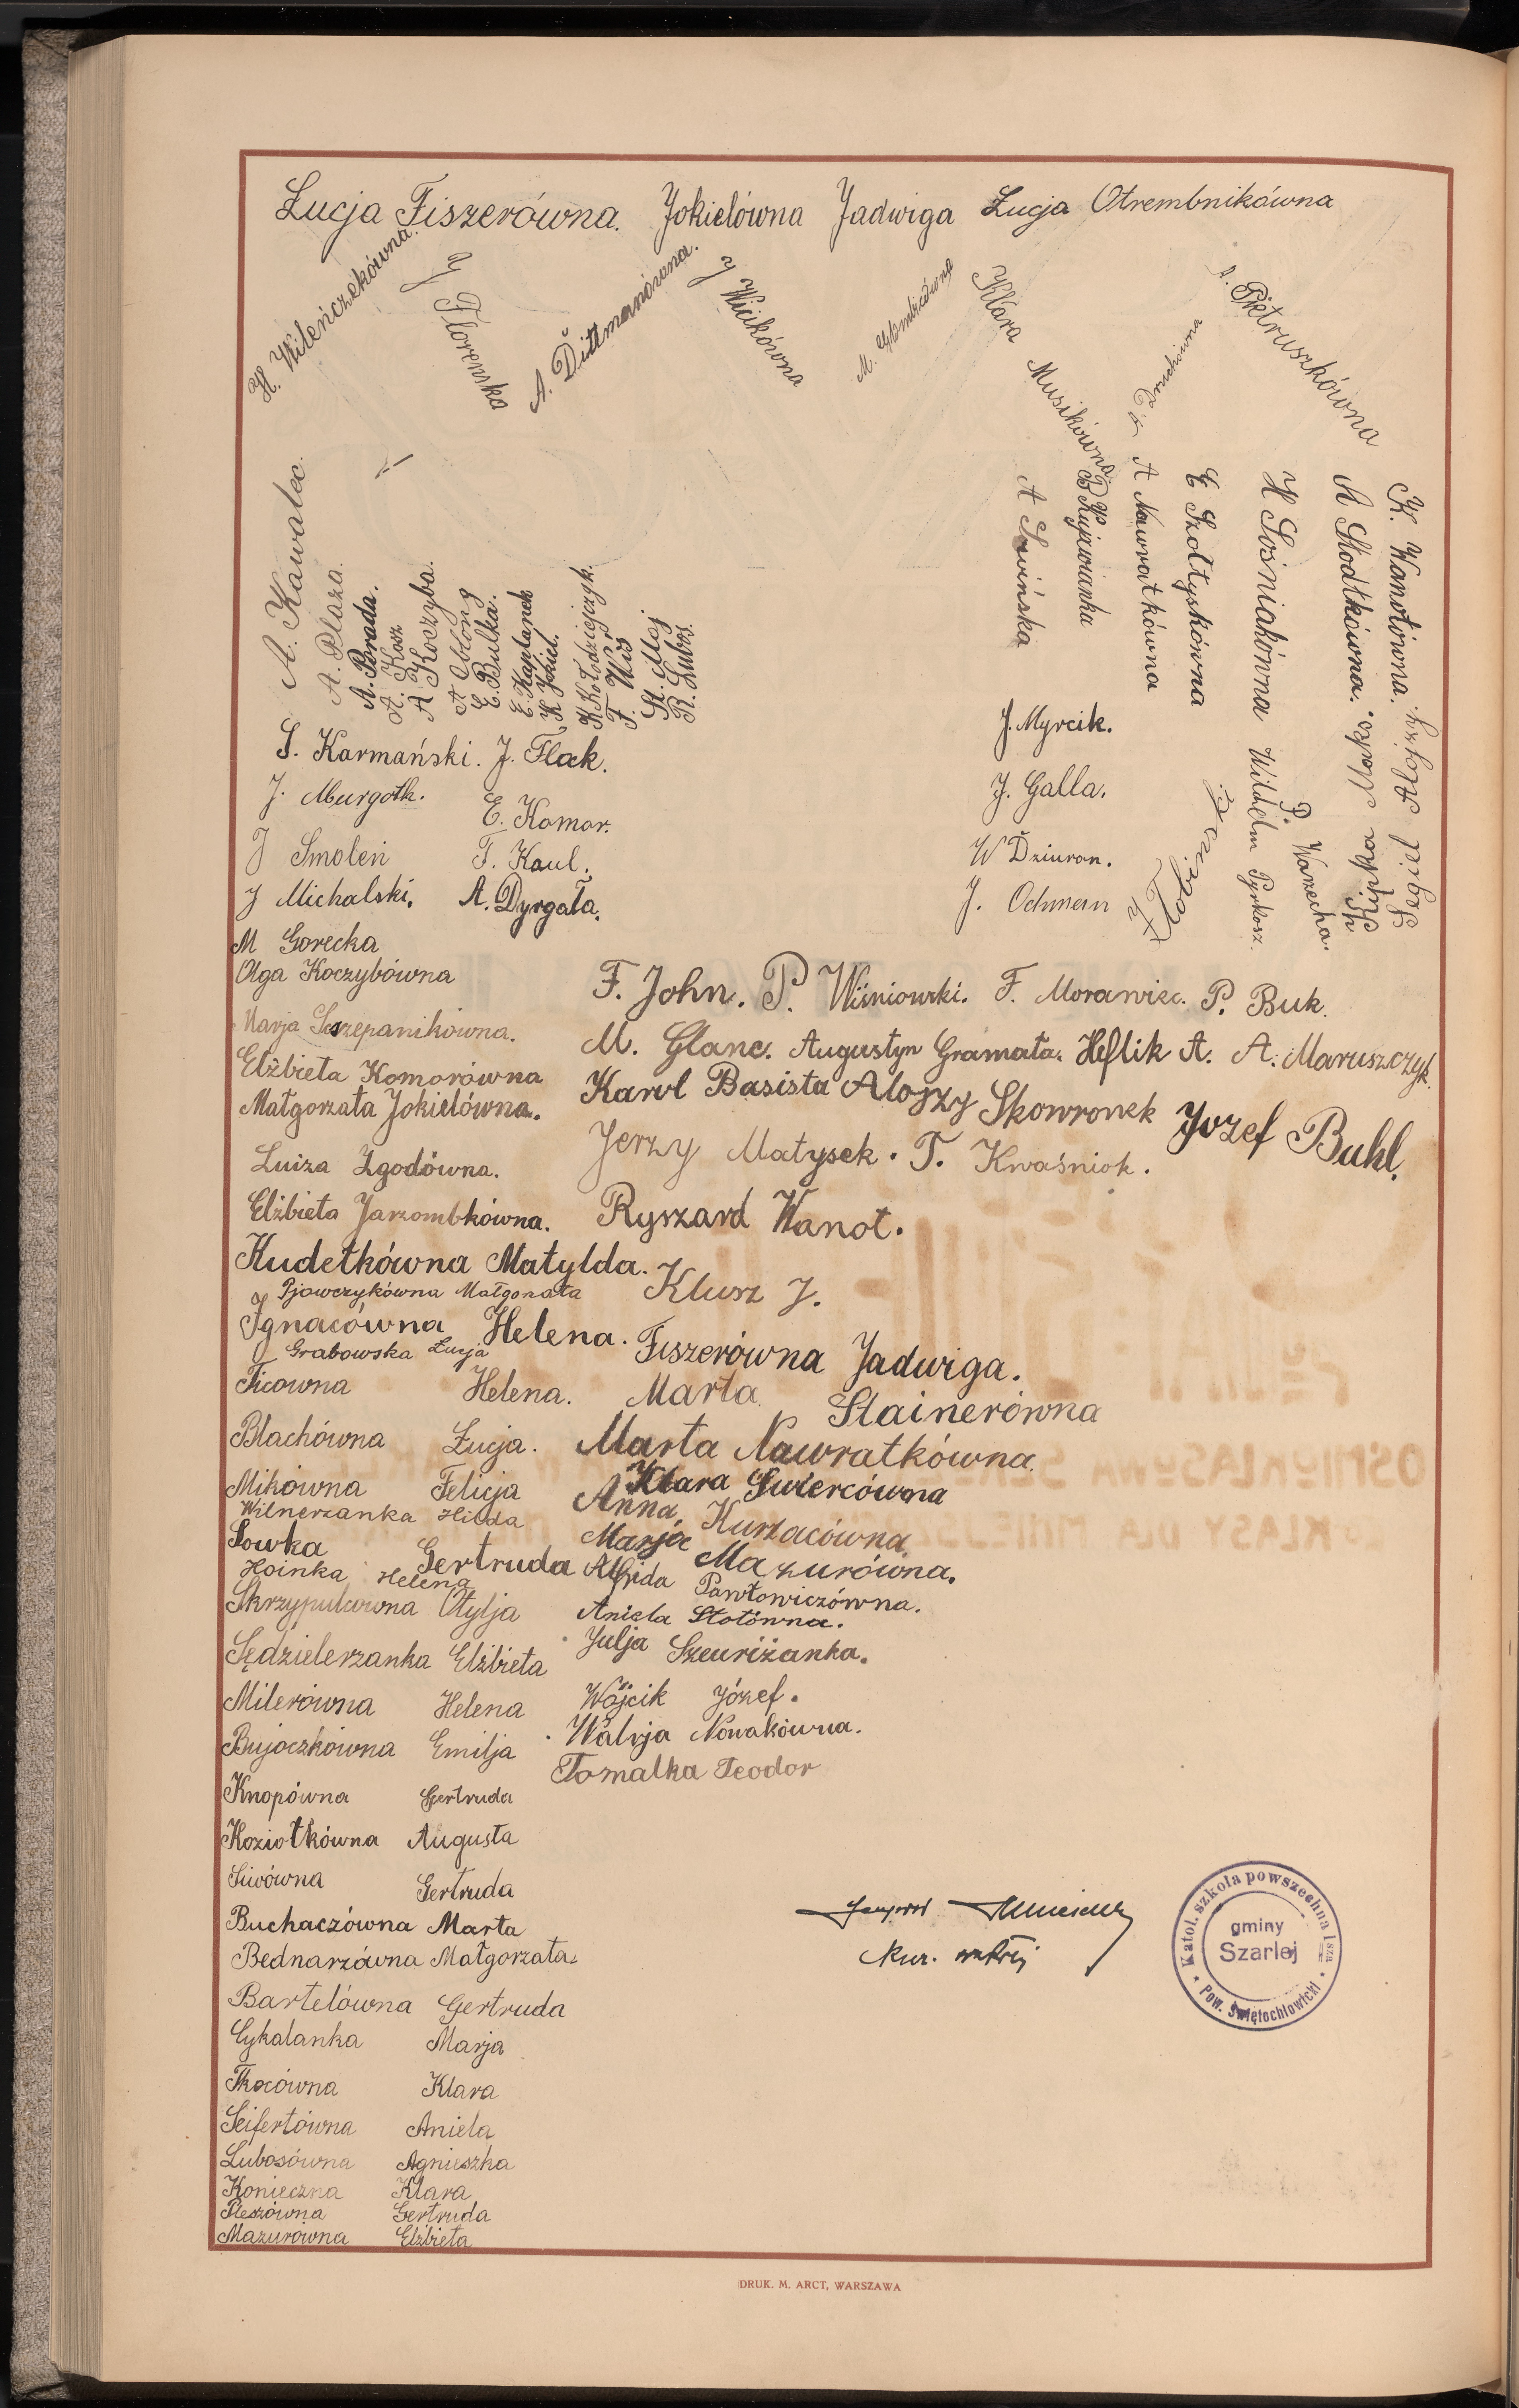 Łucja Fiszerówna. Jokielówna Jadwiga Łucja Otrembnikówna
H. Wileńczekówna.
J Florenska
A. Dittmanówna.
J Wicikówna
M.
Klara Musikówna
Pietruszkówna
A. Kawalec.
A. Plaza.
A. Porada.
A. Kosz
A Koczyba.
A Obłong
E. Bulka.
E. Kaplanek
K. Jokiel.
K Kołodziejczyk.
F. Wiś
St. Maj
R. Lubos.
A Sowińska
B Kujawianka
A Nawratkówna
E Szołtyskówna
H Sośniakówna
A Słodkówna.
K. Wanotówna.
S. Karmański. J. Flak.
J. Murgoth. E. Komor.
J Smoleń F. Kaul.
J Michalski. A. Dyrgała.
J. Myrcik.
J. Galla.
W Dziuron.
J. Ochmann
Wilhelm Pyrkosz.
P. Warzecha.
Kipka Maks.
Segiel Alojzy.
M Gorecka
Olga Koczybówna
Marja Szczepanikówna.
Elżbieta Komorówna
Małgorzata Jokielówna.
Luiza Zgodówna.
Elżbieta Jarzombkówna.
Kudełkówna Matylda.
Pjowczykówna Małgorzata
Ignacówna Helena.
Grabowska Łucja
Ficówna Helena.
Blachówna Łucja.
Mikówna Felicja
Wilnerzanka Hilda
Sowka Gertruda
Hoinka Helena
Skrzypulcówna Otylja
Sędzielerzanka Elżbieta
Milerówna Helena
Bujoczkówna Emilja
Knopówna Gertruda
Koziołkówna Augusta
Siwówna Gertruda
Buchaczówna Marta
Bednarzówna Małgorzata.
Bartelówna Gertruda
Cykalanka Marja
Tkocówna Klara
Seifertówna Aniela
Lubosówna Agnieszka
Konieczna Klara
Pleszówna Gertruda
Mazurówna Elżbieta
F. John. P. Wiśniowski. F. Morawiec. P. Buk.
M. Glanc. Augustyn Gramata. Heflik A. A. Maruszczyk.
Karol Basista Alojzy Skowronek Jozef Buhl.
Jerzy Matysek. T. Kwaśniok.
Ryszard Wanot.
Klusz J.
Fiszerówna Jadwiga.
Marta Stainerówna
Marta Nawratkówna
Klara Świercówna
Anna Kurzacówna
Marja Mazurówna.
Alfrida Pawłowiczówna.
Aniela Stotówna.
Julja Szeuriżanka.
Wójcik Józef.
Walrja Nowakówna.
Tomalka Teodor
Katol. szkoła powszechna I sza
gminy
Szarlej
Pow. Świętochłowicki
DRUK. M. ARCT, WARSZAWA